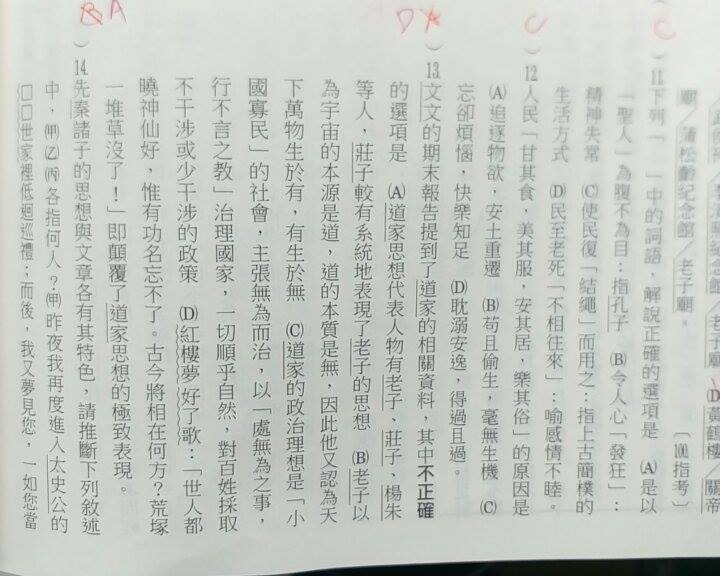 廟／蒲松齡紀念館／老子廟。〔100指考〕
C
）11.下列「　」中的詞語，解說正確的選項是　(A)是以
「聖人」為腹不為目：指孔子　(B)令人心「發狂」：
精神失常　(C)使民復「結繩」而用之：指上古簡樸的
生活方式　(D)民至老死「不相往來」：喻感情不睦。
C
）12.人民「甘其食，美其服，安其居，樂其俗」的原因是
(A)追逐物欲，安土重遷　(B)苟且偷生，毫無生機　(C)
忘卻煩惱，快樂知足　(D)耽溺安逸，得過且過。
D A
）13.文文的期末報告提到了道家的相關資料，其中不正確
的選項是　(A)道家思想代表人物有老子、莊子、楊朱
等人，莊子較有系統地表現了老子的思想　(B)老子以
為宇宙的本源是道，道的本質是無，因此他又認為天
下萬物生於有，有生於無　(C)道家的政治理想是「小
國寡民」的社會，主張無為而治，以「處無為之事，
行不言之教」治理國家，一切順乎自然，對百姓採取
不干涉或少干涉的政策　(D)紅樓夢好了歌：「世人都
曉神仙好，惟有功名忘不了。古今將相在何方？荒塚
一堆草沒了！」即顛覆了道家思想的極致表現。
B A
）14.先秦諸子的思想與文章各有其特色，請推斷下列敘述
中，㈙㈚㈛各指何人？㈙昨夜我再度進入太史公的
□□世家裡低迴巡禮：而後，我又夢見您，一如您當